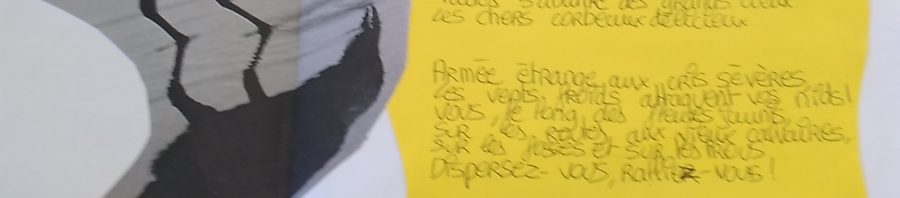 des grands cieux
Les chers corbeaux délicieux
Armée étrange aux cris sévères,
Les vents froids attaquent vos nids!
Vous, le long des fleuves jaunis,
sur les routes aux vieux calvaires,
sur les fossés et sur les trous
Dispersez-vous, ralliez-vous!